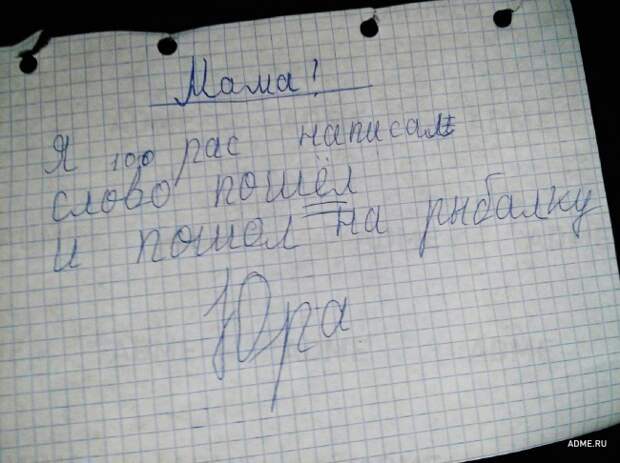 Мама!
Я 100 рас написал
слово пошёл
и пошол на рыбалку
Юра
ADME.RU